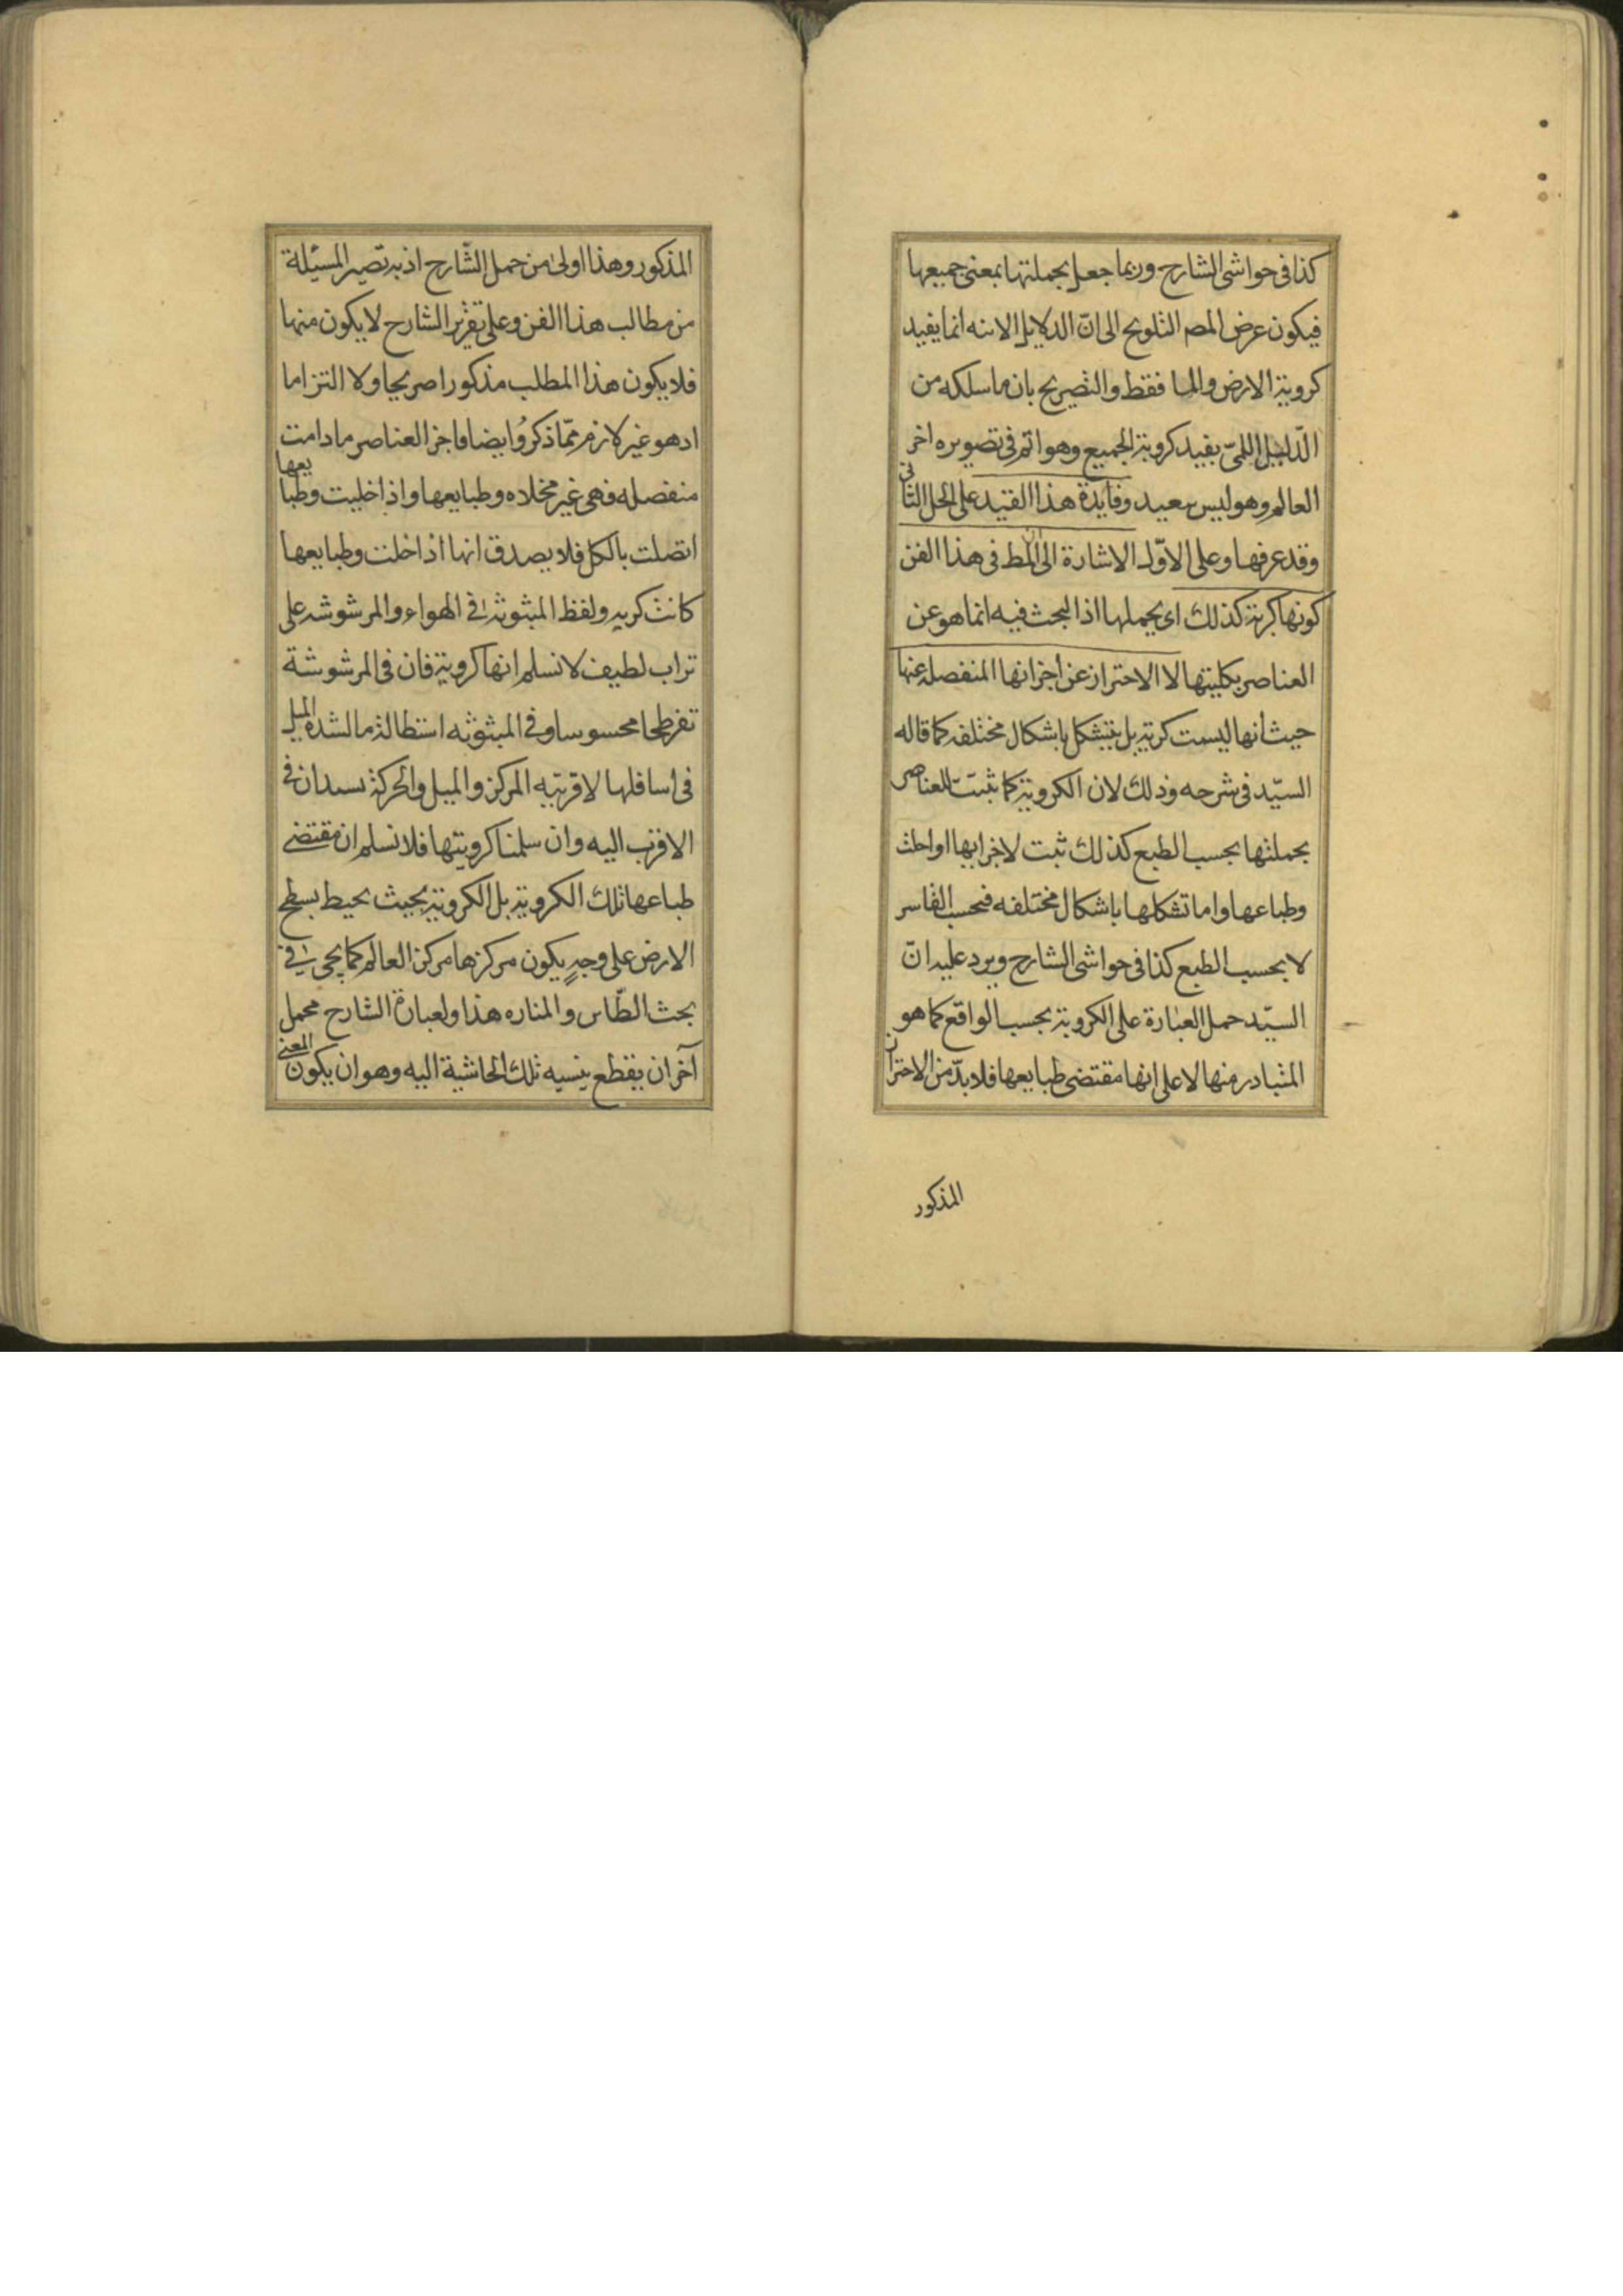 كذا فى حواشى الشارح وربما جعل بجملتها بمعنى جميعها
فيكون عرض المصـ التلويح الى انّ الدلايل الانيه انما يفيد
كروية الارض والما فقط والتصريح بان ما سلكه من
الدّليل اللمىّ يفيد كروية الجميع وهو اتم فى تصويره اخر
العالم وهو ليس ببعيد وفايدة هذا القيد على الحل الثانى
وقد عرفها وعلى الاوّل الاشارة الى ان المط فى هذا الفن
كونها كرية كذلك اى بجملها اذ البحث فيه انما هو عن
العناصر بكليتها لا الاحتراز عن أجزائها المنفصله عنها
حيث أنها ليست كرية بل يتشكل باشكال مختلفه كما قاله
السيّد فى شرحه وذلك لان الكروية كما ثبتت للعناصر
بجملتها بحسب الطبع كذلك ثبت لاجزايها او احلت
وطباعها واما تشكلها باشكال مختلفه فبحسب القاسر
لا بحسب الطبع كذا فى حواشى الشارح ويرد عليه انّ
السيّد حمل العبارة على الكروية بحسب الواقع كما هو
المتبادر منها لا على انها مقتضى طبايعها فلا بدّ من الاحتراز
المذكور
المذكور وهذا اولى من حمل الشّارح اذ به تصير المسئلة
من مطالب هذا الفن وعلى تقرير الشارح لا يكون منها
فلا يكون هذا المطلب مذكورا صريحا ولا التزاما
اد هو غير لازم ممّا ذكروُ ايضا فاجز العناصر ما دامت
منفصله فهى غير مخلاه وطبايعها واذا خليت وطبايعها
اتصلت بالكل فلا يصدق انها اذا خلت وطبايعها
كانت كريه ولفظ المبثوثة فى الهواء والمرشوشه على
تراب لطيف لا نسلم انها كروية فان فى المرشوشة
تفرطحا محسوسا وفى المبثوثه استطالة ما لشدة الميل
فى اسافلها لاقربيه المركز والميل والحركة يسدان فى
الاقرب اليه وان سلمنا كرويتها فلا نسلم ان مقتضى
طباعها تلك الكروية بل الكروية بحيث يحيط بسطح
الارض على وجهٍ يكون مركزها مركز العالم كما يجى فى
بحث الطّاس والمناره هذا ولعبارة الشارح محمل
آخر ان يقطع بنسبه تلك الحاشية اليه وهو ان يكون المعنى